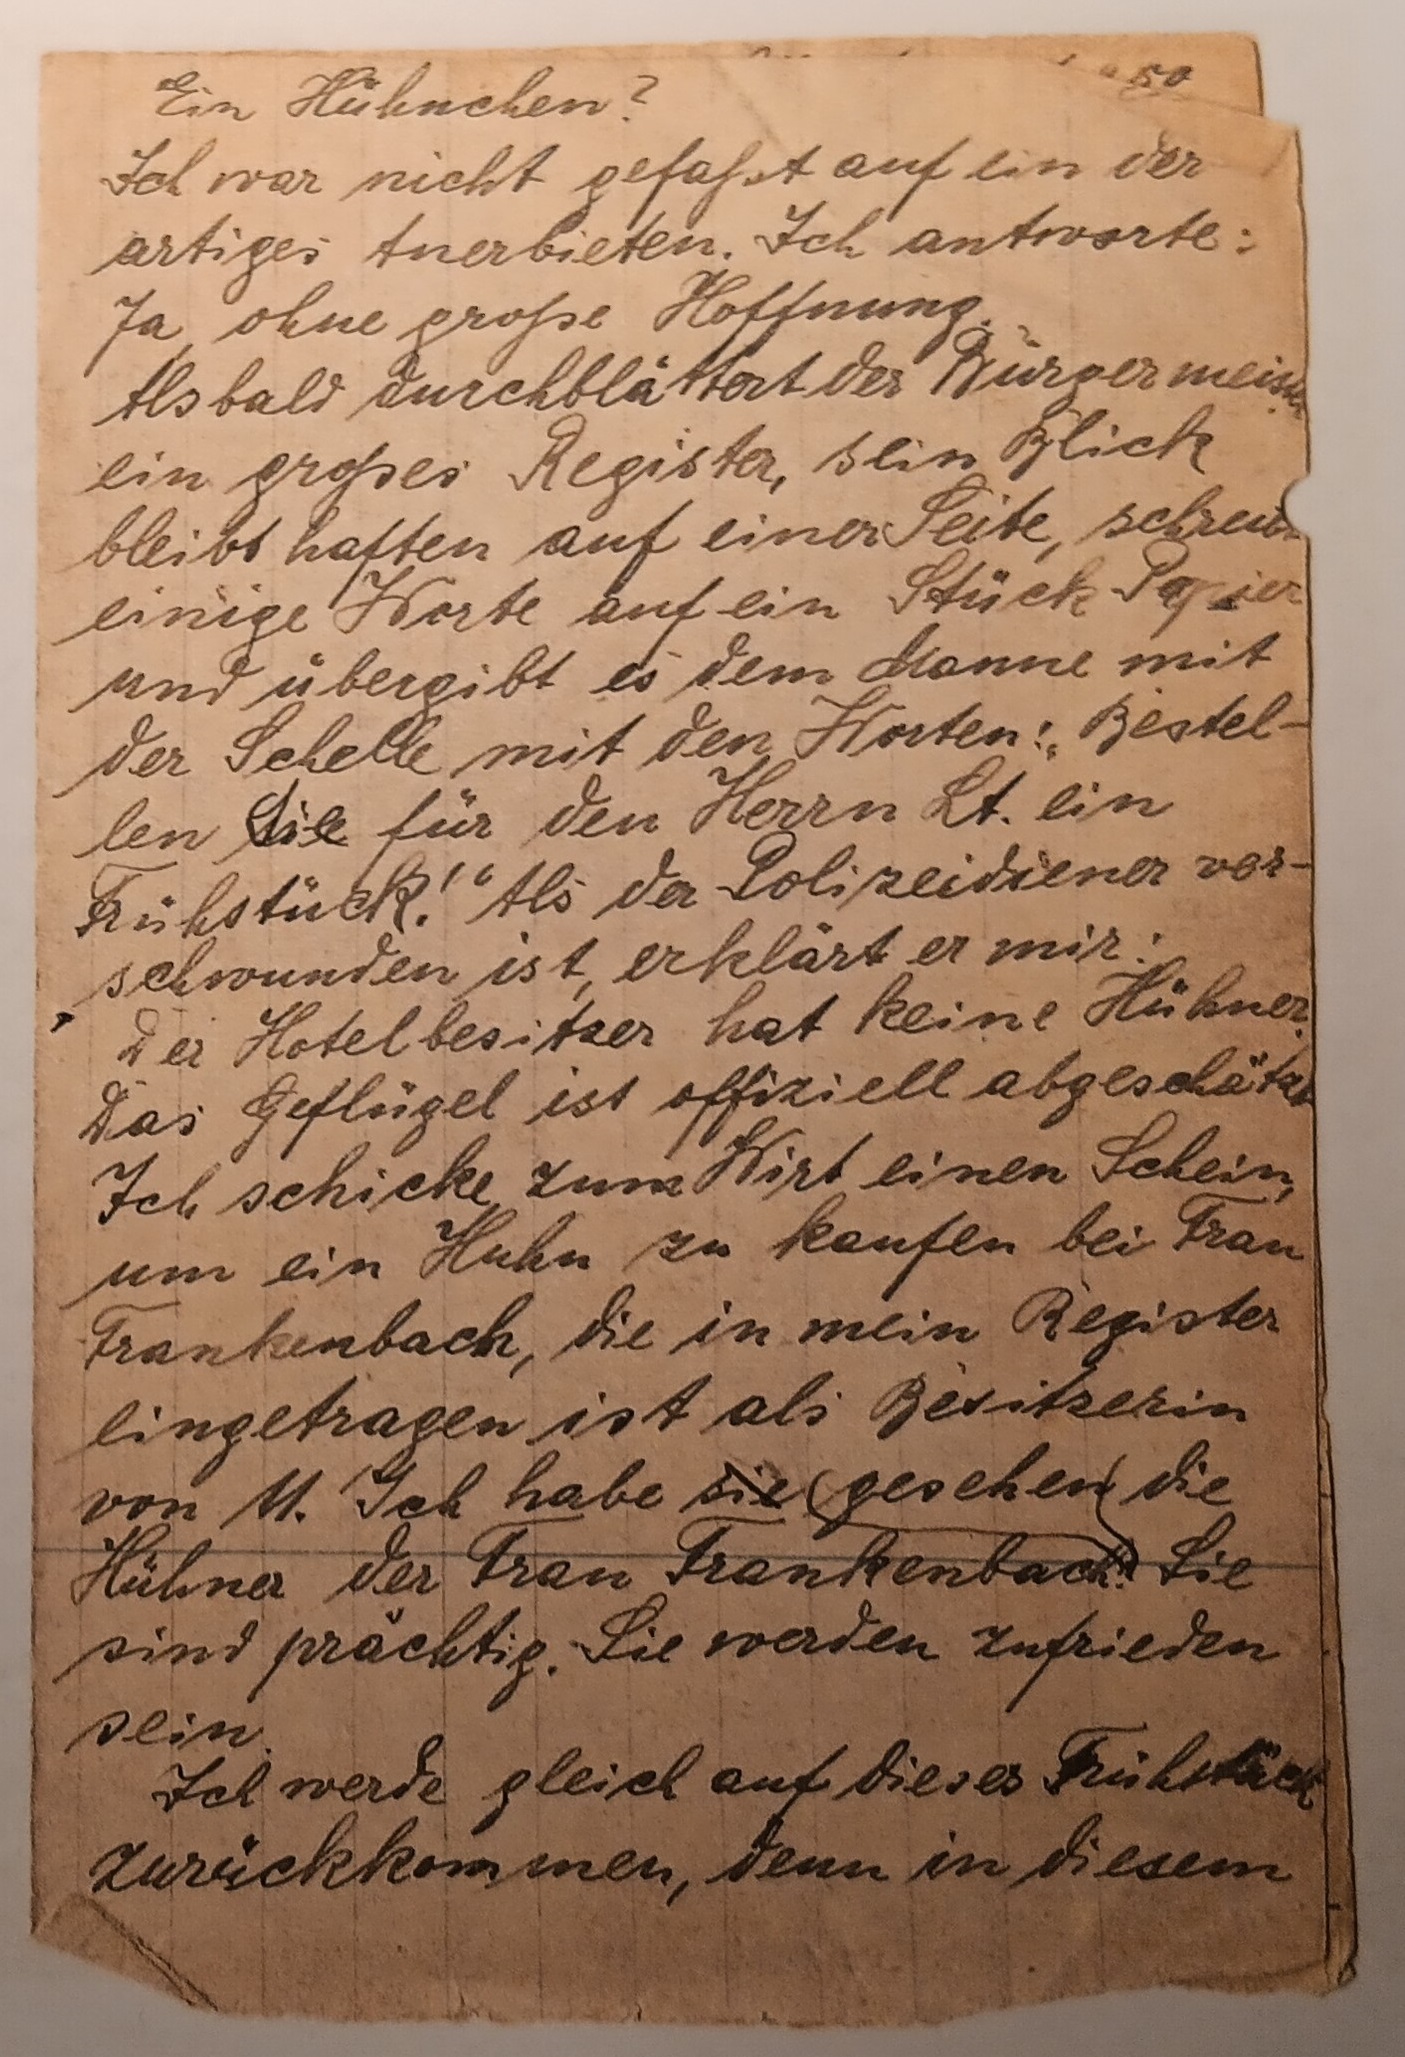 50
Ein Hühnchen?
Ich war nicht gefaßt auf ein der
artiges Anerbieten. Ich antworte:
Ja, ohne große Hoffnung.
Alsbald durchblättert der Bürgermeister
ein großes Register, sein Blick
bleibt haften auf einer Seite, schreibt
einige Worte auf ein Stück Papier
und übergibt es dem Manne mit
der Schelle mit den Worten: „Bestel-
len Sie für den Herrn Lt. ein
Frühstück!“ Als der Polizeidiener ver-
schwunden ist, erklärt er mir:
Der Hotelbesitzer hat keine Hühner.
Das Geflügel ist offiziell abgeschätzt
Ich schicke zum Wirt einen Schein,
um ein Huhn zu kaufen bei Frau
Frankenbach, die in mein Register
eingetragen ist als Besitzerin
von 11. Ich habe sie (gesehen) die
Hühner der Frau Frankenbach. Sie
sind prächtig. Sie werden zufrieden
sein.
Ich werde gleich auf dieses Frühstück
zurückkommen, denn in diesem